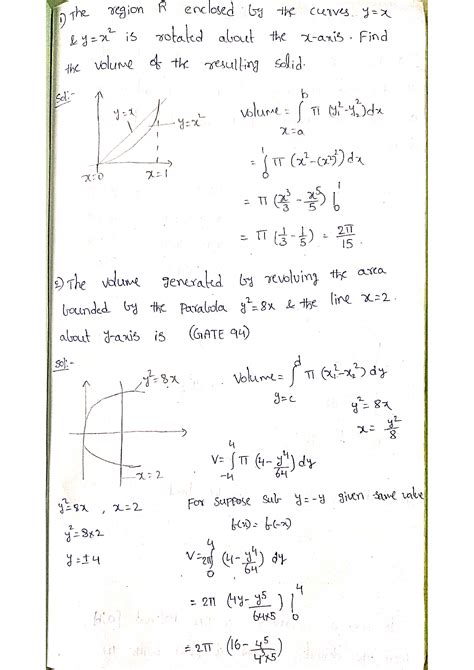 1) The region R enclosed by the curves y=x
& y=x² is rotated about the x-axis. Find
the volume of the resulting solid.
Sol:-
y=x
y=x²
x=0
x=1
Volume = ∫_{x=a}^{b} π (y₁²-y₂²) dx
= ∫_0^1 π (x²-(x²)²) dx
= π (x³/3 - x⁵/5) |_0^1
= π (1/3 - 1/5) = 2π/15.
2) The volume generated by revolving the area
bounded by the Parabola y²=8x & the line x=2.
about y-axis is (GATE 94)
Sol:-
y²=8x
x=2
Volume = ∫_{y=c}^{d} π (x₁²-x₂²) dy
y²=8x
x= y²/8
V= ∫_{-4}^{4} π (4 - y⁴/64) dy
y²=8x , x=2
y²=8x2
y=±4
For suppose sub y=-y given same value
f(x) = f(-x)
V=2π ∫_0^4 (4 - y⁴/64) dy
= 2π (4y - y⁵/64x5) |_0^4
= 2π (16 - 4⁵/4³x5)